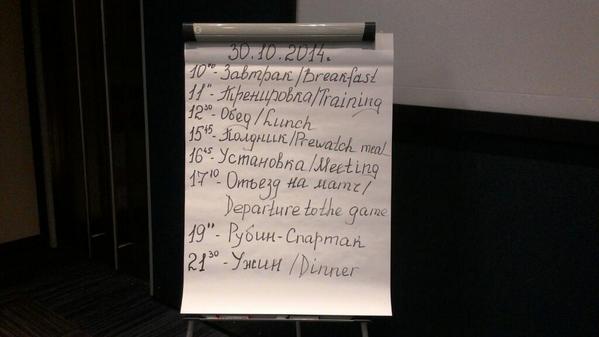 30.10.2014г.
10⁰⁰- Завтрак/Breakfast
11⁰⁰- Тренировка/Training
12³⁰- Обед/Lunch
15⁴⁵- Полдник/Prewatch meal
16⁴⁵- Установка/Meeting
17¹⁰- Отъезд на матч/
Departure to the game
19⁰⁰- Рубин-Спартак
21³⁰- Ужин/Dinner